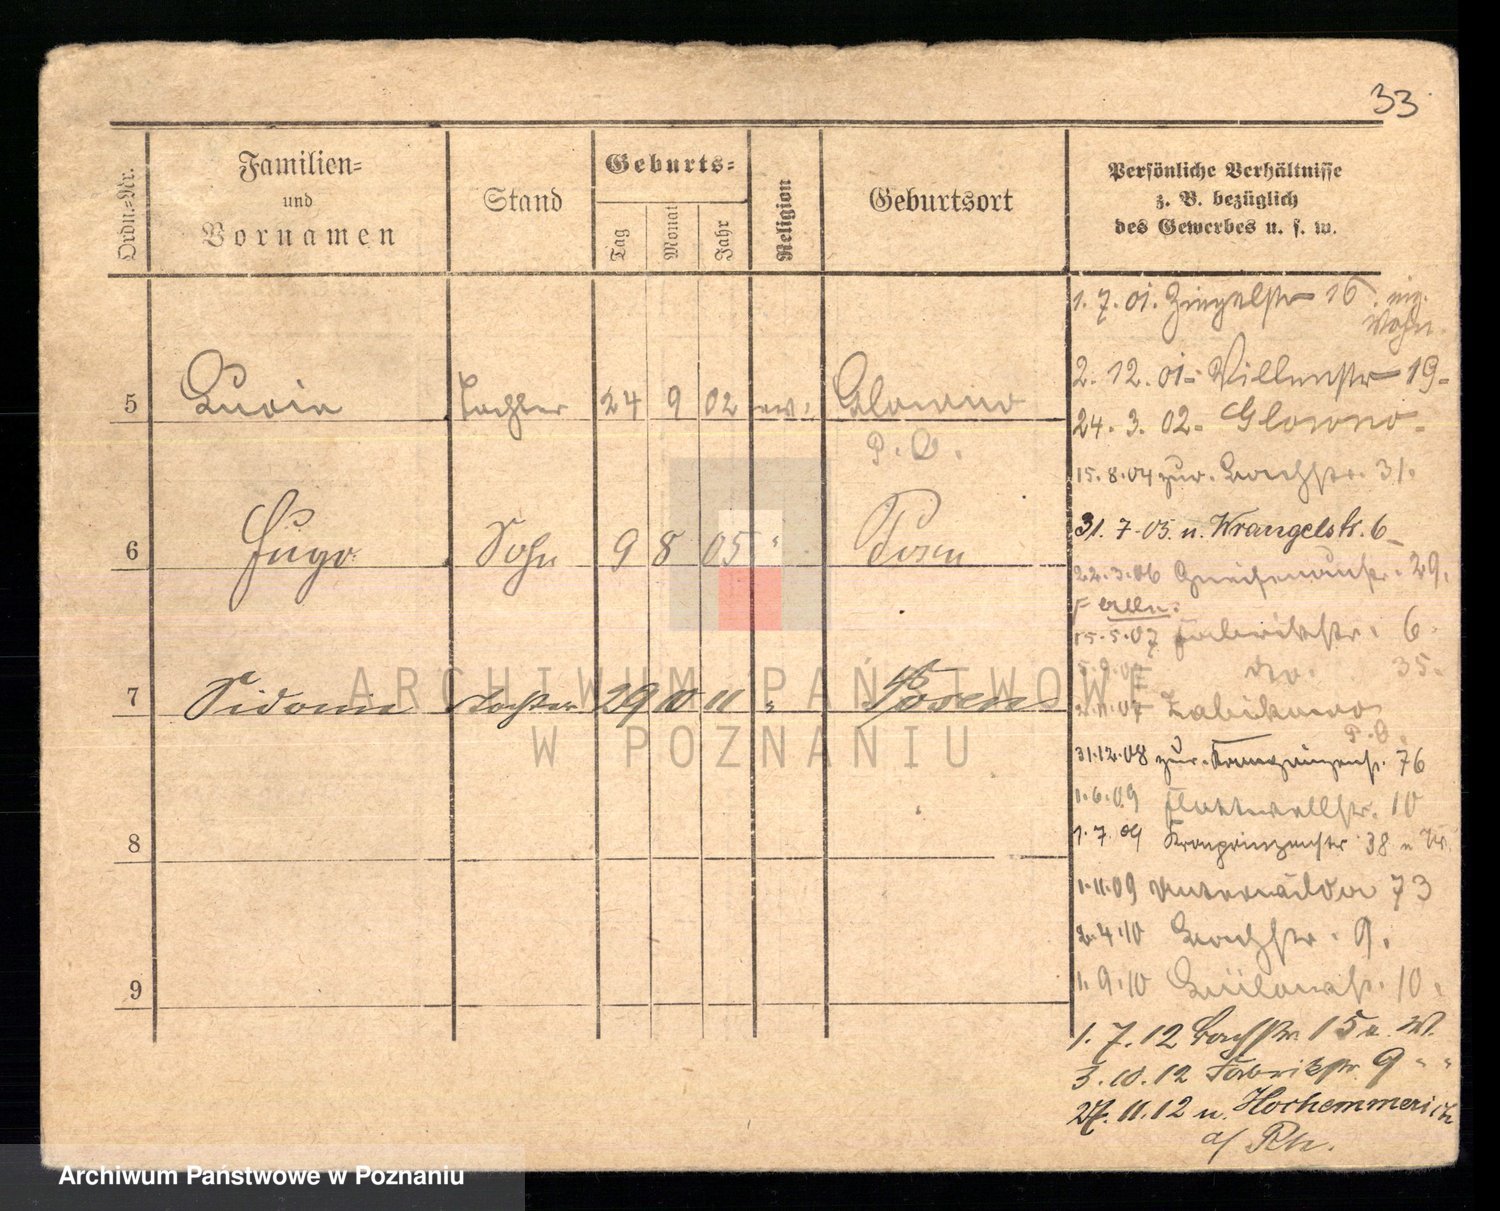 33
Ordn.=Nr.
Familien=
und
Vornamen
Stand
Geburts=
Tag
Monat
Jahr
Religion
Geburtsort
Persönliche Verhältnisse
z. B. bezüglich
des Gewerbes u. s. w.
1. 7. 01. Ziegelstr 16. eig.
Wohn.
2. 12. 01. Villenstr 19
24. 3. 02. Glowno
5 Luzia Tochter 24 9 02 ev. Glowno
P. O.
15. 8. 04 zur. Bachstr. 31.
31. 7. 05. u. Wrangelstr. 6
6 Hugo Sohn 9 8 05 " Posen
22. 3. 06 Gneisenaustr. 29.
15. 5. 07 Fabrikstr. 6
5. 9. 07 do. 35.
7 Sidonie Tochter 29 10 11 " Posen
2. 11. 07 Zabikowo
P. O.
31. 12. 08 zur. Kronprinzenstr. 76
1. 6. 09 Flottwellstr. 10
8
1. 7. 09 Kronprinzenstr 38 u W.
1. 11. 09 Unterwilda 73
2. 4. 10 Bachstr. 9.
9
1. 9. 10 Bülowstr. 10.
1. 7. 12 Bachstr. 15 u. W.
3. 10. 12 Fabrikstr. 9 " "
27. 11. 12 u. Hochemmerich
a/ Rh.
ARCHIWUM PAŃSTWOWE
W POZNANIU
Archiwum Państwowe w Poznaniu